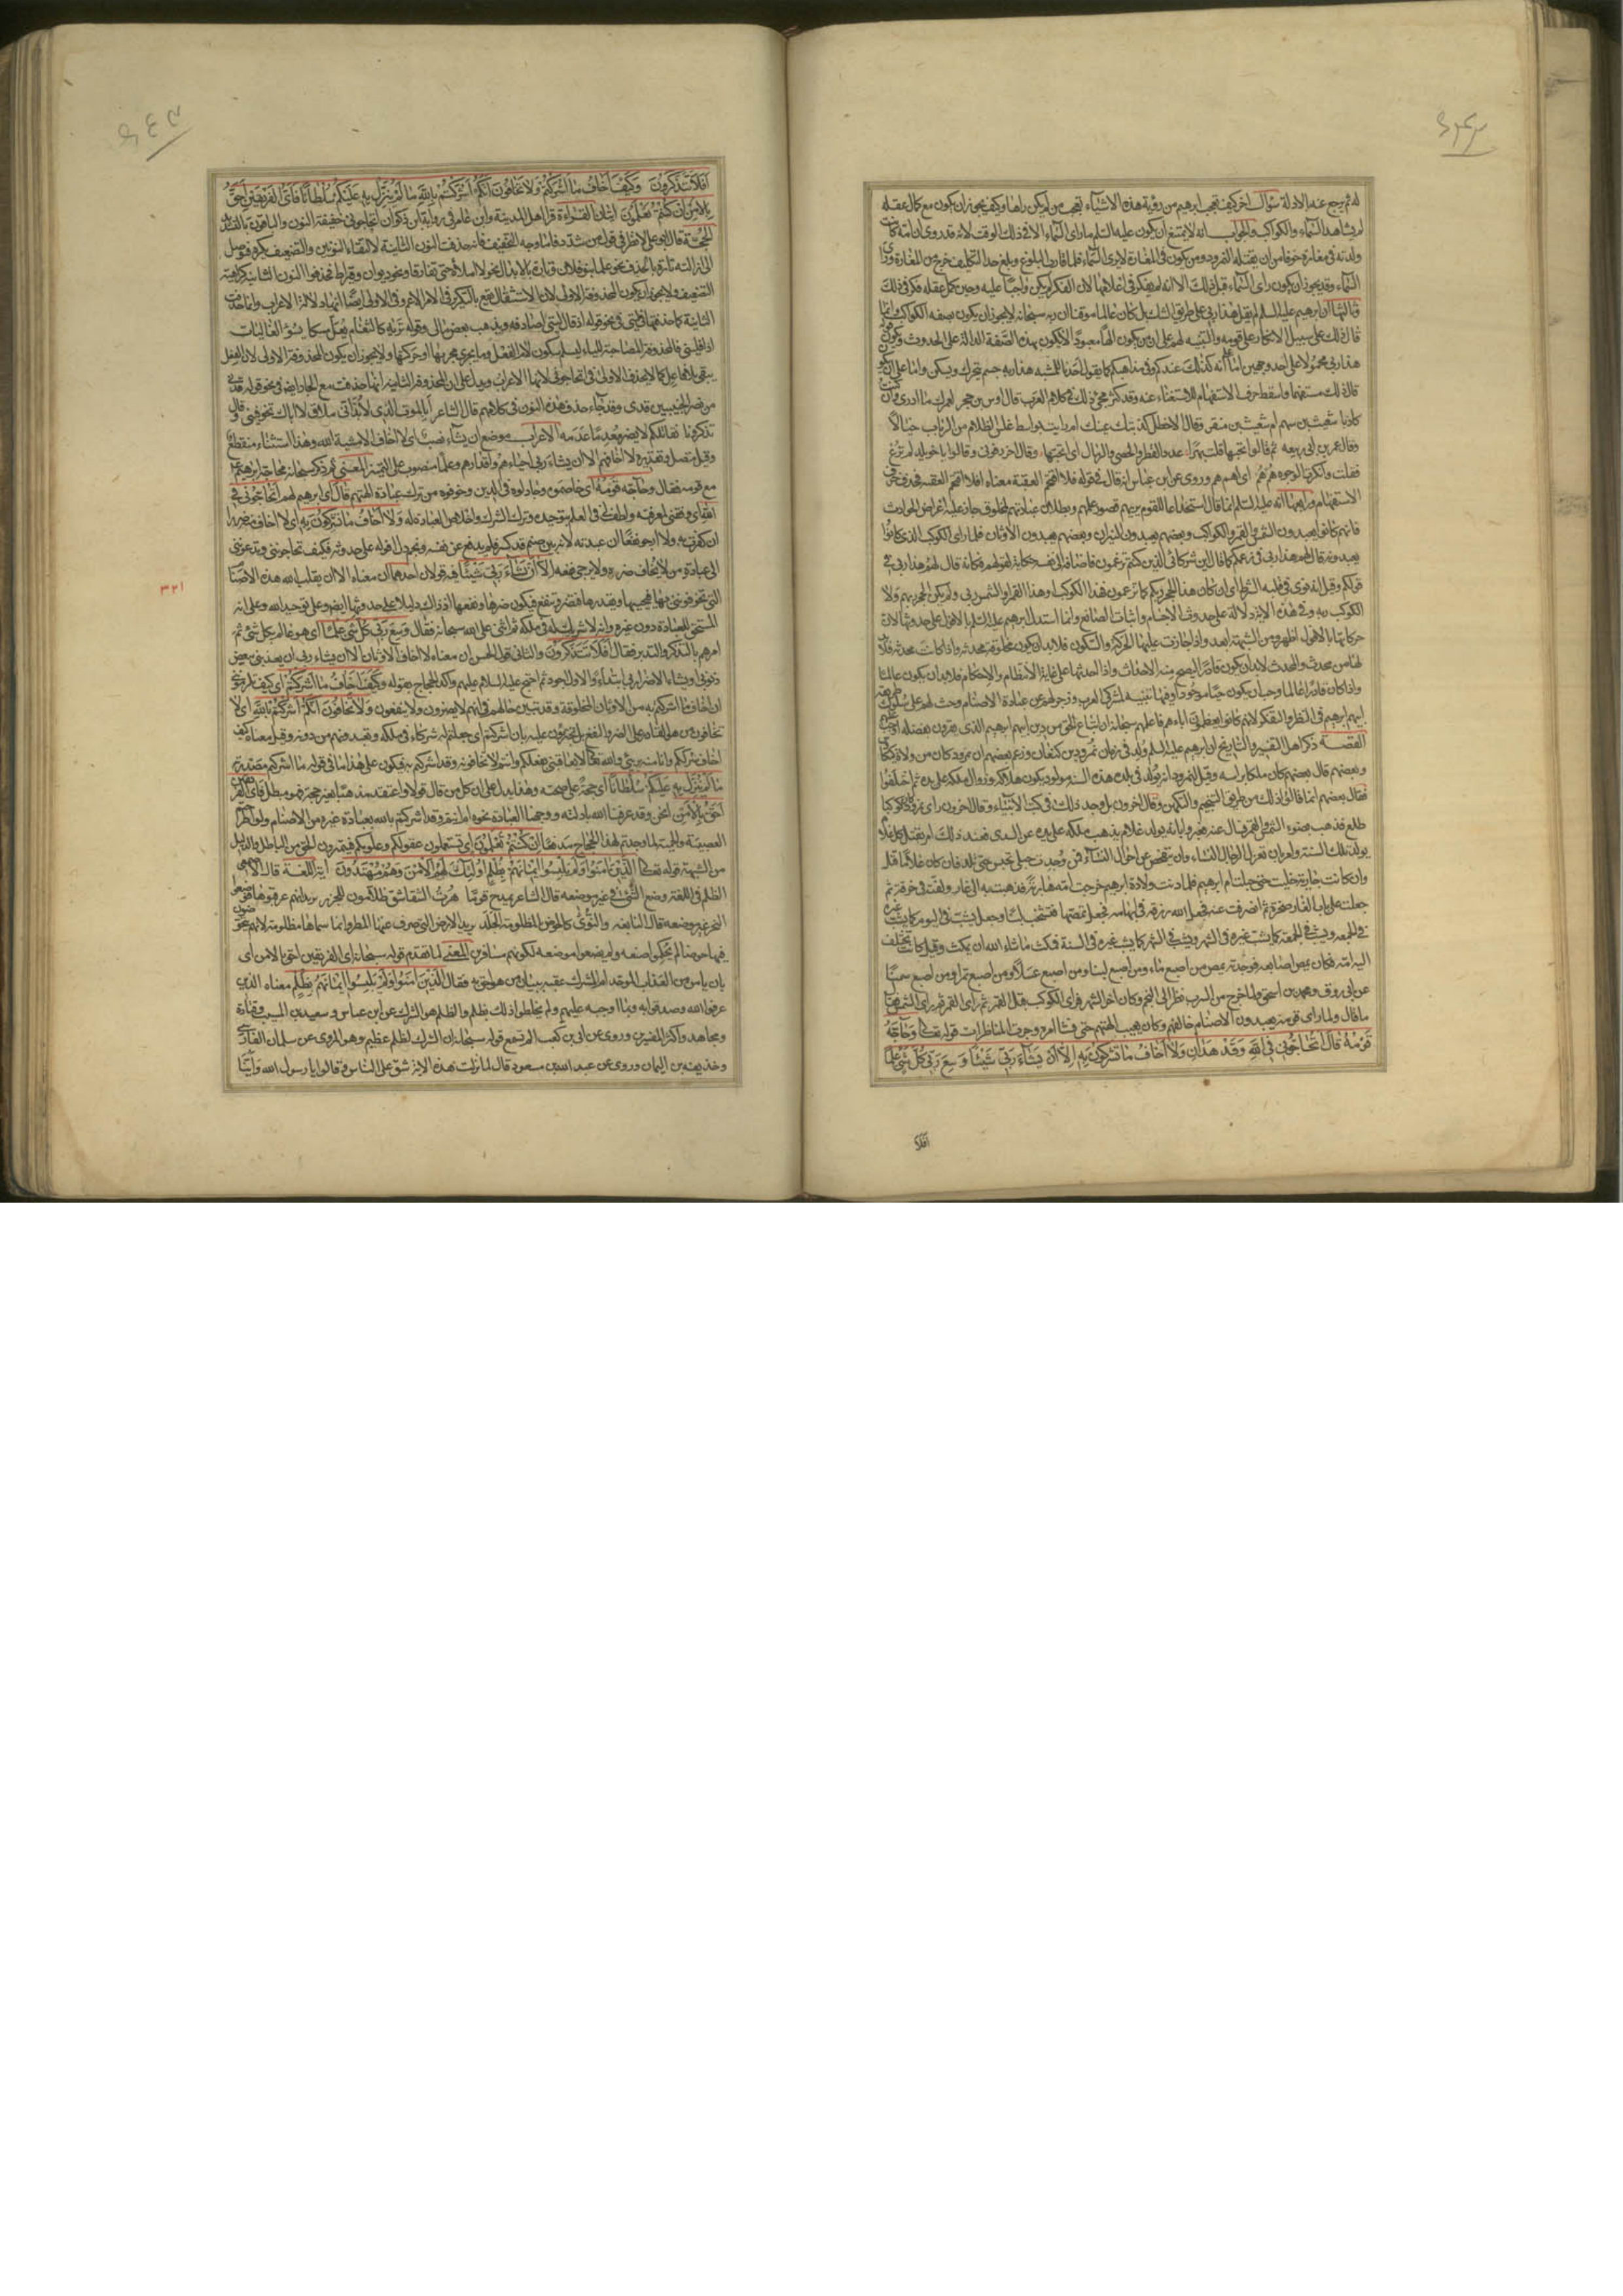 لم يرجع عنه الادلة سؤال اخر كيف تعجب ابرهيم من رؤية هذه الاشياء تعجب من لم يكن راها وكيف يجوز ان يكون مع كمال عقله
لم يشاهد السماء والكواكب والجواب انه لا يمتنع ان يكون عليه السلم ما راى السماء الا فى ذلك الوقت لانه قد روى ان امه كانت
ولدته فى مغارة خوفا من ان يقتله النمرود ومن يكون فى المغارة لا يرى السماء فلما قارب البلوغ وبلغ حد التكليف خرج من المغارة وراى
السماء وقد يجوز ان يكون راى السماء قبل ذلك الا انه لم يفكر فى اعلامها لان الفكر لم يكن واجبا عليه وحين كمل عقله فكر فى ذلك
وثالثها ان ابرهيم عليه السلم لم يقل هذا ربى على طريق الشك بل كان عالما موقنا ان ربه سبحانه لا يجوز ان يكون بصفه الكواكب وانما
قال ذلك على سبيل الانكار على قومه والتنبيه لهم على ان من يكون الها معبودا لا يكون بهذه الصفة الدالة على الحدوث ويكون قوله
هذا ربى محمولا على احد وجهين اما انه كذلك عندكم وفى مذاهبكم كما يقول احدنا للمشبه هذا ربه جسم يتحرك ويسكن واما على ان يكون
قال ذلك مستفهما واسقط حرف الاستفهام للاستغناء عنه وقد كثر مجئ ذلك فى كلام العرب قال اوس بن حجر لعمرك ما ادرى وان كنت
داريا شعيث بن سهم ام شعيث بن منقر وقال الاخطل كذبتك عينك ام رايت بواسط غلس الظلام من الرباب خيالا
وقال عمر بن ابى ربيعه ثم قالوا تحبها قلت بهرا عدد القطر والحصى والرمال اى اتحبها وقال اخر رفونى وقالوا يا خويلد لم ترع
فقلت وانكرت الوجوه هم هم اى اهم هم وروى عن ابن عباس انه قال فى قوله فلا اقتحم العقبة معناه افلا اقتحم العقبه فحذف حرف
الاستفهام ورابعها انه عليه السلم انما قال استخداعا للقوم يريهم قصور علمهم وبطلان عبادتهم لمخلوق جار عليه اعراض الحوادث
فانهم كانوا يعبدون الشمس والقمر والكواكب وبعضهم يعبدون النيران وبعضهم يعبدون الاوثان فلما راى الكوكب الذى كانوا
يعبدونه قال لهم هذا ربى فى زعمكم كما قال اين شركائى الذين كنتم تزعمون فاضافه الى نفسه حكاية لقولهم فكانه قال لهم هذا ربى فى
قولكم
الكوكب ربه وفى هذه الاية دلالة على حدوث الاجسام واثبات الصانع وانما استدل ابرهيم عليه السلم بالافول على حدوثها لان
حركاتها بالافول اظهر ومن الشبهة ابعد واذا جازت عليها الحركة والسكون فلا بد ان يكون مخلوقة محدثه واذا كانت محدثه فلا بد
لها من محدث والمحدث لا بد ان يكون قادرا ليصح منه الاحداث واذا احدثها على غاية الانتظام والاحكام فلا بد ان يكون عالما
واذا كان قادرا عالما وجب ان يكون حيا موجودا وفيها تنبيه لمشركى العرب وزجر لهم عن عبادة الاصنام وحث لهم على سلوك طريقه
ابيهم ابرهيم فى النظر والتفكر لانهم كانوا يعظمون اباءهم فاعلمهم سبحانه ان اتباع الحق من دين ابيهم ابرهيم الذى يقرون بفضله اوجب
القصة ذكر اهل التفسير والتاريخ ان ابرهيم عليه السلم ولد فى زمان نمرود بن كنعان وزعم بعضهم ان نمرود كان من ولاة كيكاوس
وبعضهم قال بعضهم كان ملكا براسه وقيل لنمرود انه يولد فى بلده هذه السنه مولود يكون هلاكه وزوال ملكه على يده ثم اختلفوا
فقال بعضهم انما قالوا ذلك من طريق التنجيم والتكهن وقال اخرون بل وجد ذلك فى كتب الانبياء وقال اخرون راى نمرود كان كوكبا
طلع فذهب بضوء الشمس والقمر فسال عنه فعبر رؤياه بانه يولد غلام يذهب ملكه على يده عن السدى فعند ذلك امر بقتل كل ولد
يولد تلك السنة وامر بان تعزل الرجال النساء وان يتفحص عن احوال النساء فمن وجدت حبلى تحبس حتى تلد فان كان غلاما قتل
وان كانت جارية خليت حتى حبلت ام ابرهيم فلما دنت ولادة ابرهيم خرجت امه هاربة فذهبت به الى غار ولفته فى خرقة ثم
جعلت على باب الغار صخرة ثم انصرفت عنه فجعل الله رزقه فى ابهامه فجعل يمصها فتشخب لبنا وجعل يشب فى اليوم كما يشب غيره
فى الجمعه ويشب فى الجمعة كما يشب غيره فى الشهر ويشب فى الشهر كما يشب غيره فى السنة فمكث ما شاء الله ان يمكث وقيل كانت تختلف
اليه امه فكان يمص اصابعه فوجدته يمص من اصبع ماء ومن اصبع لبنا ومن اصبع عسلا ومن اصبع تمرا ومن اصبع سمنا
عن ابى روق ومحمد بن اسحق ولما خرج من السرب نظر الى النجم وكان اخر الشهر فراى الكوكب قبل القمر ثم راى القمر ثم راى الشمس فقال
ما قال ولما راى قومه يعبدون الاصنام خالفهم وكان يعيب الهتهم حتى فشا امره وجرت المناظرات قوله تعالى وحاجه
قومه قال اتحاجونى فى الله وقد هدان ولا اخاف ما تشركون به الا ان يشاء ربى شيئا وسع ربى كل شئ علما
افلا
افلا تتذكرون وكيف اخاف ما اشركتم ولا تخافون انكم اشركتم بالله ما لم ينزل به عليكم سلطانا فاى الفريقين احق
بالامن ان كنتم تعلمون ايتان القراءة قرا اهل المدينة وابن عامر فى رواية ابن ذكوان اتحاجونى خفيفة النون والباقون بالتشديد
الحجة قال ابو على لا نظر فى قول من شدد فاما وجه التخفيف فانه حذف النون الثانية لالتقاء النونين والتضعيف يكره فيتوصل
الى ازالته تارة بالحذف نحو علماء بنو فلان وتارة بالابدال نحو لا املاه حتى تفارقا ونحو ديوان وقيراط فحذفوا النون الثانية كراهية
التضعيف ولا يجوز ان يكون المحذوفة الاولى لان الاستثقال يقع بالتكرير فى الامر الاعم وفى الاولى ايضا انها دلالة الاعراب وانما حذفت
الثانية كما حذفتها فى ليتى فى نحو قوله اذ قال ليتى اصادفه ويذهب بعض مالى وقوله تراه كالثغام يعل مسكا يسوء الفاليات
اذا فلينى فالمحذوفة المصاحبة للياء ليسلم سكون لام الفعل وما يجرى مجريها او حركتها ولا يجوز ان يكون المحذوفة الاولى لان الفعل
يبقى بلا فاعل كما لا يحذف الاولى فى اتحاجونى لانها الاعراب ويدل على ان المحذوفة الثانية انها حذفت مع الجار ايضا فى نحو قوله قدنى
من نصر الخبيبين قدى وقد جاء حذف هذه النون فى كلامهم قال الشاعر ابالموت الذى لا بد انى ملاق لا اباك تخوفينى وقال
تذكرونا نقاتلكم الاعراب موضع ان يشاء نصب اى لا اخاف الا مشية الله وهذا استثناء منقطع
وقيل متصل وتقديره لا اخافهم الا ان يشاء ربى احياءهم واقدارهم وعلما منصوب على التمييز المعنى ثم ذكر سبحانه محاجة ابرهيم
مع قومه فقال وحاجه قومه اى خاصموه وجادلوه فى الدين وخوفوه من ترك عبادة الهتهم قال اى ابرهيم لهم اتحاجونى فى
الله اى وفقنى لمعرفته ولطف لى فى العلم بتوحيده وترك الشرك واخلاص العبادة له ولا اخاف ما تشركون به اى لا اخاف ضررها
ان كفرت به ولا ارجو نفعا ان عبدته لانه بين صنم قد كسر فلم يدفع عن نفسه ونجم دل افوله على حدوثه فكيف تحاجونى وتدعوننى
الى عبادة من لا يخاف ضرره ولا يرجى نفعه الا ان يشاء ربى شيئا فيه قولان احدهما ان معناه الا ان يقلب الله هذه الاصنام
التى تخوفوننى بها فيحييها ويقدرها فتضر وتنفع فيكون ضرها ونفعها اذ ذاك دليلا على حدوثها ايضا وعلى توحيد الله وعلى انه
المستحق للعبادة دون غيره وانه لا شريك له فى ملكه ثم اثنى على الله سبحانه فقال وسع ربى كل شئ علما اى هو عالم بكل شئ ثم
امرهم بالتذكر والتدبر فقال افلا تتذكرون والثانى قول الحسن ان معناه لا اخاف الاوثان الا ان يشاء ربى ان يعذبنى ببعض
ذنوبى ويشاء الاضرار بى ابتداء والاول اجود ثم احتج عليه السلام عليهم واكد الحجاج بقوله وكيف اخاف ما اشركتم اى كيف يلزمنى
ان اخاف ما اشركتم به من الاوثان المخلوقة وقد تبين حالهم فى انهم لا يضرون ولا ينفعون ولا تخافون انكم اشركتم بالله اى لا
تخافون من هو القادر على الضر والنفع بل تجترؤن عليه بان اشركتم اى جعلتم له شركاء فى ملكه وتعبدونهم من دونه وقيل معناه كيف
اخاف شرككم وانا منه برئ والله تعالى لا يعاقبنى بفعلكم وانتم لا تخافونه وقد اشركتم به فيكون على هذا ما فى قوله ما اشركتم مصدرية
ما لم ينزل به عليكم سلطانا اى حجة على صحته وهذا يدل على ان كل من قال قولا واعتقد مذهبا بغير حجة فهو مبطل فاى الفريقين
احق بالامن انحن وقد عرفنا الله بادلته ووجهنا العبادة نحوه ام انتم وقد اشركتم بالله بعبادة غيره من الاصنام ولو اطرحتم
العصبية والحمية لما وجدتم لهذا الحجاج مدفعا ان كنتم تعلمون اى تستعملون عقولكم وعلومكم فتميزون الحق من الباطل والدليل
من الشبهة قوله تعالى الذين امنوا ولم يلبسوا ايمانهم بظلم اولئك لهم الامن وهم مهتدون اية اللغة قال الاصمعى
الظلم فى اللغة وضع الشئ فى غير موضعه قال الشاعر يمدح قوما هرت الشقاشق ظلامون للجزر يريد انهم عرقبوها فوضعوا
النحر غير موضعه قال النابغه والنؤى كالحوض بالمظلومة الجلد يريد الارض التى صرف عنها المطر وانما سماها مظلومة لانهم يتحوضون
فيها حوضا لم يحكموا صنعه ولم يضعوه موضعه لكونهم مسافرين المعنى لما تقدم قوله سبحانه اى الفريقين احق بالامن اى
بان يامن من العذاب الموحد ام المشرك عقبه ببيان من هو احق به فقال الذين امنوا ولم يلبسوا ايمانهم بظلم معناه الذين
عرفوا الله وصدقوا به وبما اوجبه عليهم ولم يخلطوا ذلك بظلم والظلم هو الشرك عن ابن عباس وسعيد بن المسيب وقتادة
ومجاهد واكثر المفسرين وروى عن ابى بن كعب الم تسمع قوله سبحانه ان الشرك لظلم عظيم وهو المروى عن سلمان الفارسى
وحذيفه بن اليمان وروى عن عبد الله بن مسعود قال لما نزلت هذه الاية شق على الناس وقالوا يا رسول الله واينا
٣٢١